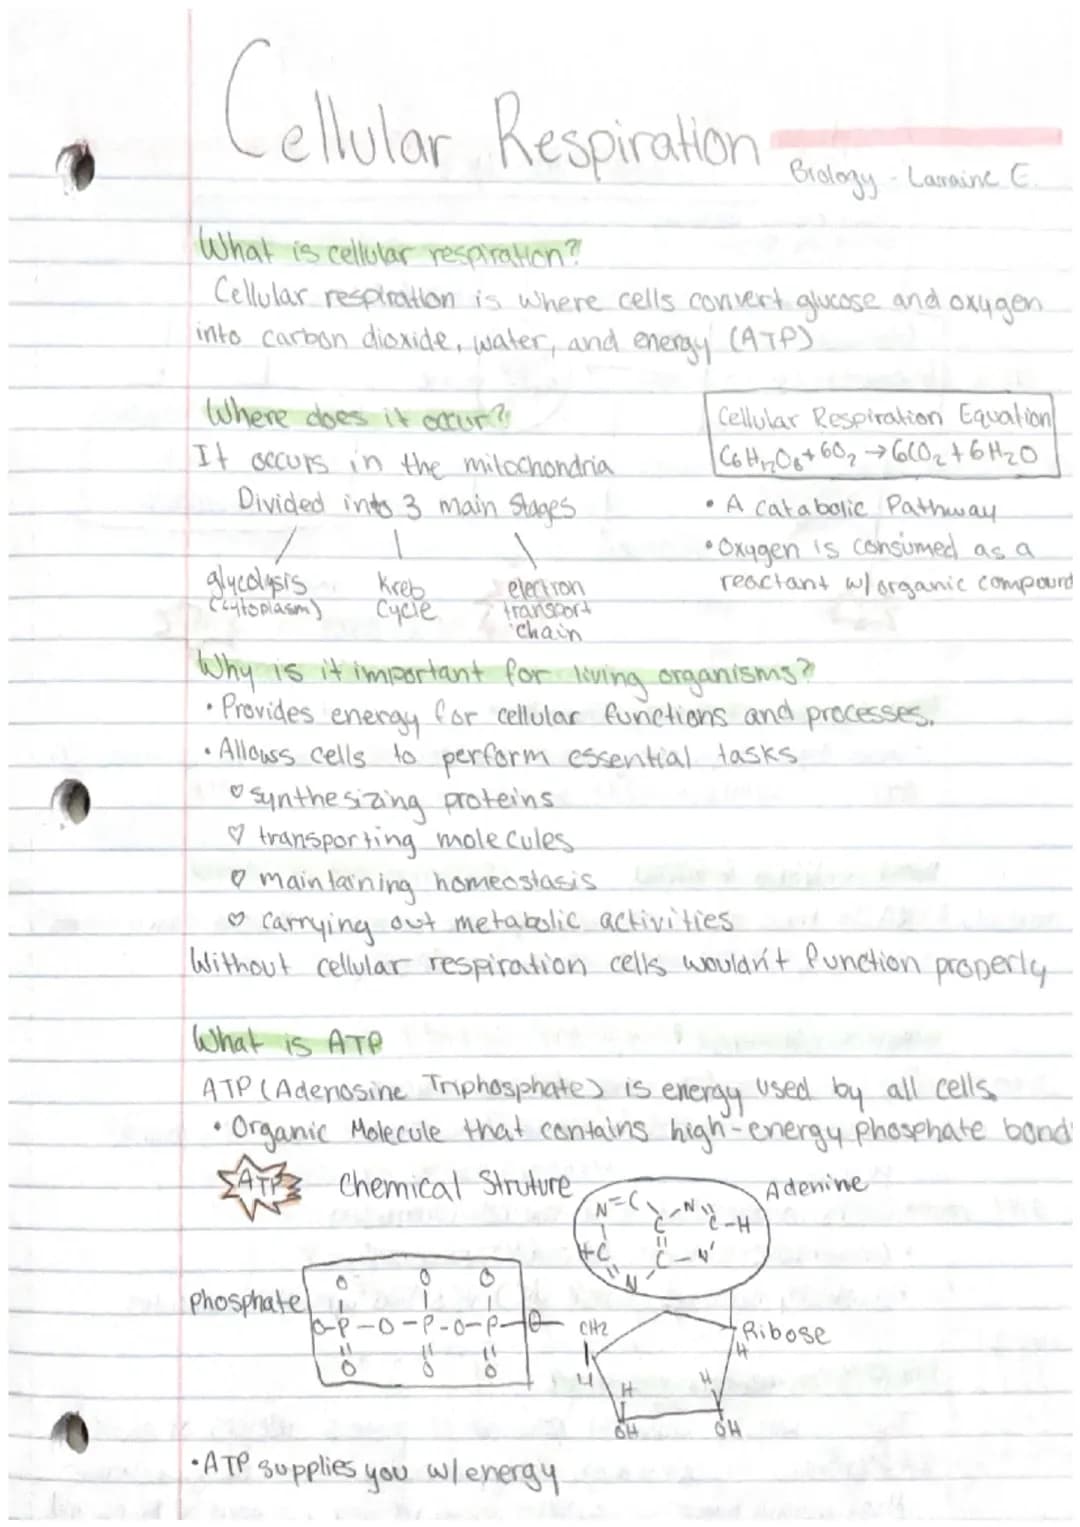 Cellular Respiration
Biology - Larraine E.
What is cellular respiration?
Cellular respiration is where cells convert glucose and oxygen
into carbon dioxide, water, and energy (ATP)
Where does it occur?
It occurs in the mitochondria
Divided into 3 main stages
glycolysis
(cytoplasm)
Kreb
Cycle
electron
transport
chain
Cellular Respiration Equation
C6H12O6+6O2→6CO2+6H2O
• A catabolic Pathway
• Oxygen is consumed as a
reactant w/organic compound
Why is it important for living organisms?
• Provides energy for cellular functions and processes.
• Allows cells to perform essential tasks
♡ synthesizing proteins
♡ transporting molecules
♡ maintaining homeostasis
♡ carrying out metabolic activities
Without cellular respiration cells wouldn't function properly
What is ATP
ATP (Adenosine Triphosphate) is energy used by all cells.
• Organic Molecule that contains high-energy phosphate bond
ATP
Chemical Struture
Adenine
N=C
C-N
C-H
HC
C-N
N
Phosphate
O O O
O-P-O-P-O-P-O-CH2
O O O
Ribose
H
H H
OH OH
• ATP supplies you w/energy